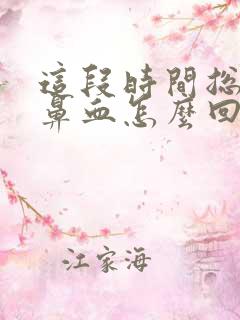 這段時間總
鼻血怎麼回
江家海